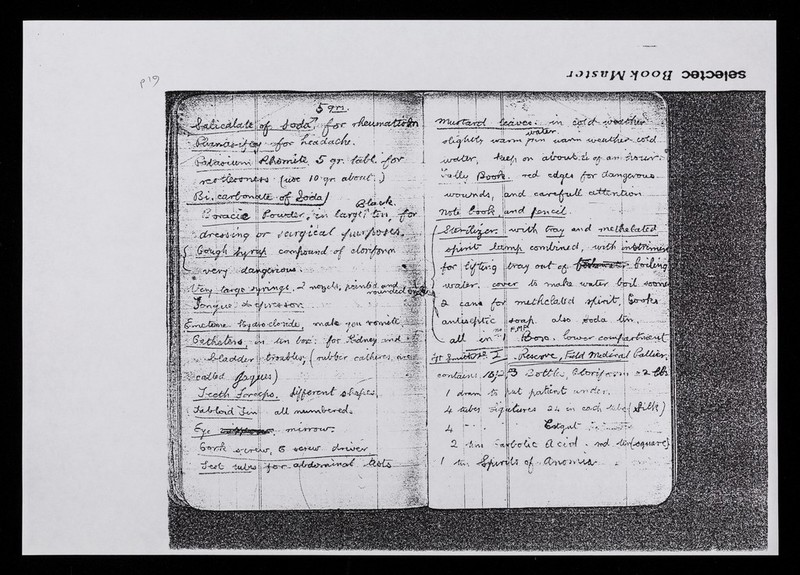 selectec Book Master
p 19
5 grn.
Salicalate of Soda, for rheumatism
for headache.
5 gr. tabl. for
restlessness (use 10 gr. about.)
Bi. carbonate of Soda
Black
Boracic Powder, in large tin, for
dressing or surgical purposes.
Cough Syrup compound of cloriform
very dangerous
Very large syringe. 2 nozels, pointed and
rounded
Tongue depressor.
Emetome Hydro cloride, make you vomit.
Cathatens, in tin box: for Kidney and
bladder troubles, (rubber catheters,
called Jaques)
Teeth Forceps. different shapes.
Tabloid Tin all numbered.
Eye mirrow.
Cork screw, & screw driver
Test tubes for abdominal
Mustard leaves. in cold weather
water
slightly warm in warm weather cold
water, keep on about ½ of an hour.
Tally Book. red edges for dangerous
wounds, and carefull attention
Note book, and pencil.
Sterilizer. with tray and methelated
spirit lamp combined, with instrument
for lifting tray out of boiling
water. cover to make water boil sooner
2 cans for methelated spirit, Swabs
antiseptic soap. also soda tin.
all in Boxo. lower compartment
Reserve, Field Medical Pallier.
contains, 3 Bottles, Cloriform = 2 lbs
1 dram to put patient under.
4 tubes 24 in each tube (Silk)
4 Catgut
2 tins Carbolic Acid. red tin (square)
1 tin Spirits of Anomia